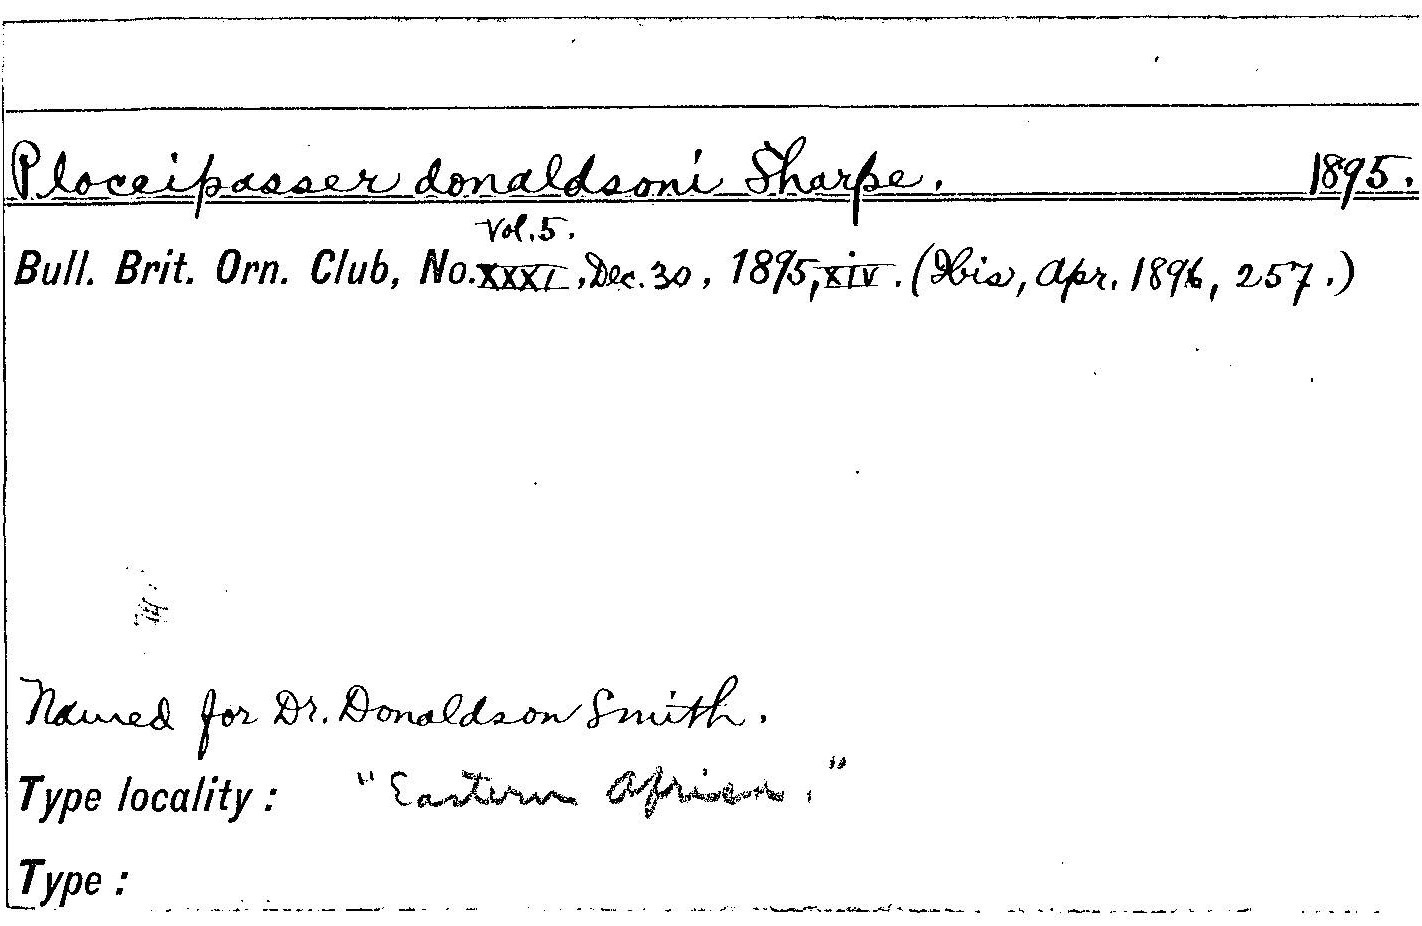 Ploceipasser donaldsoni Sharpe. 1895.
Vol. 5.
Bull. Brit. Orn. Club, No. XXXI, Dec. 30, 1895, xiv. (Ibis, Apr. 1896, 257.)
Named for Dr. Donaldson Smith.
Type locality: "Eastern Africa."
Type: